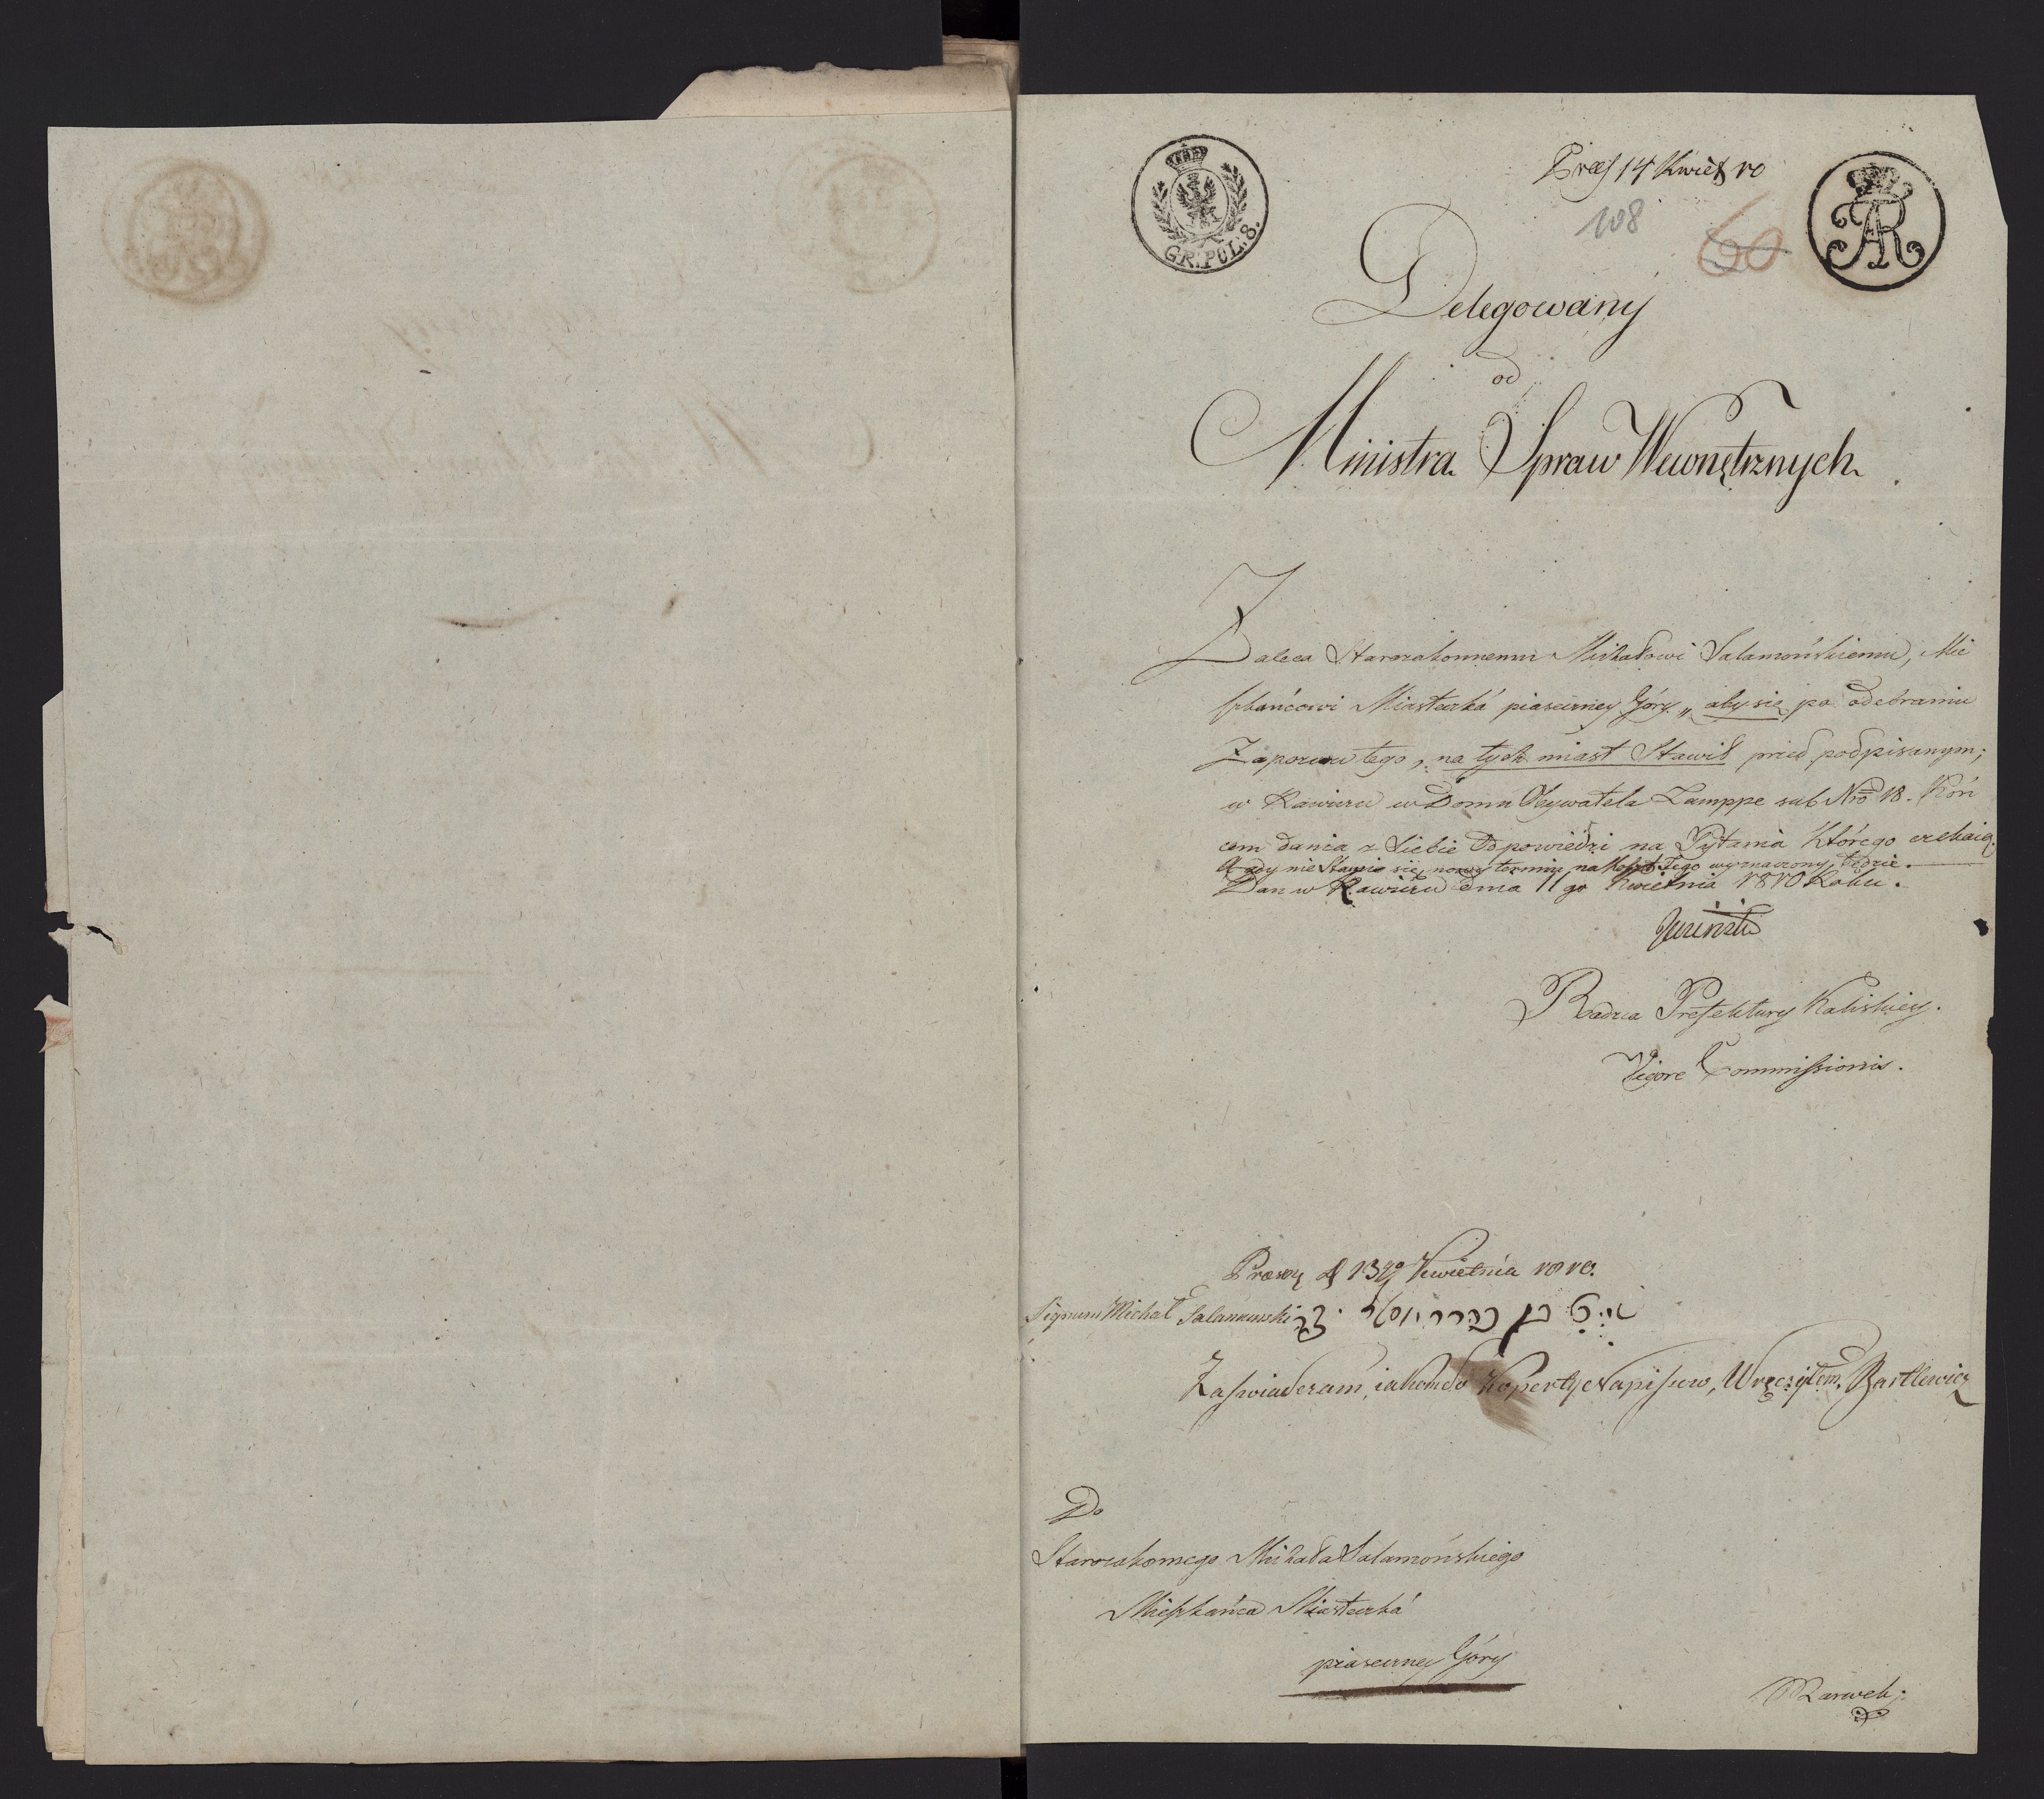 GR. POL: 8.
Præs 14 Kwiet 10
108
60
AR
Delegowany
od
Ministra Spraw Wewnętrznych
Zaleca Starozakonnemu Michałowi Salamońskiemu, Mie
szkańcowi Miasteczká piaseczney Góry „ aby się po odebraniu
Zapozwu tego, na tych miast Stawił przed podpisanym;
w Rawiczu w Domu Obywatela Lamppe sub Nro 18. Koń
cem dania z Siebie Odpowiedzi na Pytania którego czekaią.
A gdy nie Stawie się, nowy termin na Koszt Jego wyznaczony będzie.
Dan w Rawiczu dnia 11go Kwietnia 1810 Roku.
Radca Prefektury Kaliskiey.
Vigore Commissionis.
13go Kwietnia 1810.
Signum Michał Salamonski
Zaswiadczam, iako Kopertę Wręczyłem. Bartlewicz
Do
Starozakonnego Michała Salamońskiego
Mieszkańca Miasteczká
piaseczney Góry